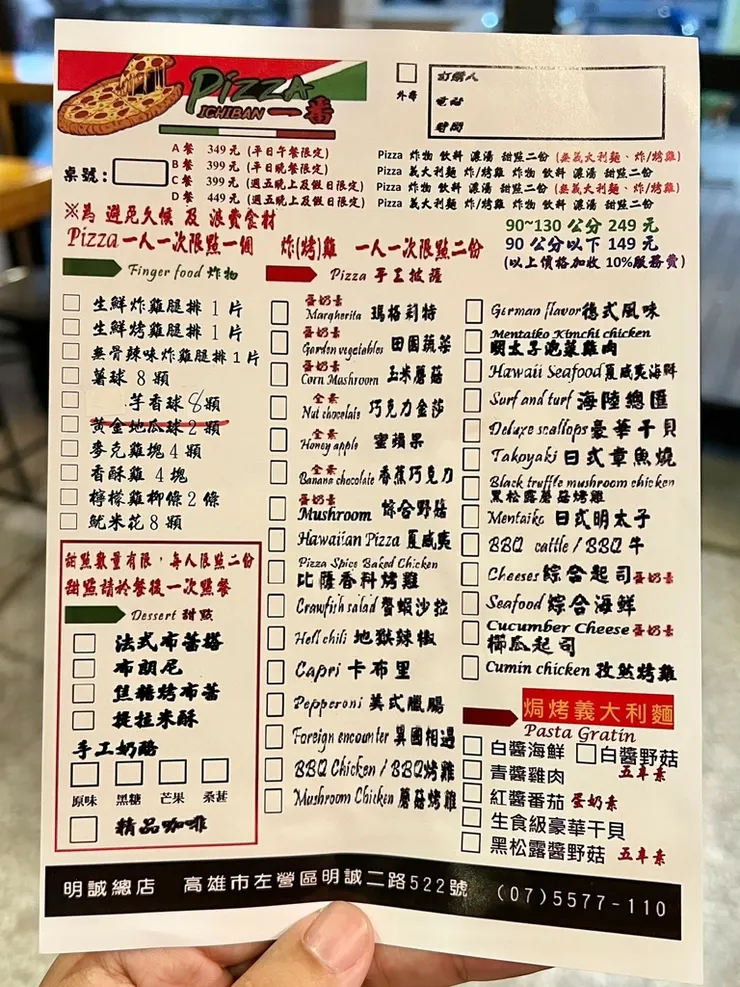 Pizza
ICHIBAN 一番
外帶
訂購人
電話
時間
桌號：
A餐 349元 (平日午餐限定)
B餐 399元 (平日晚餐限定)
C餐 399元 (週五晚上及假日限定)
D餐 449元 (週五晚上及假日限定)
Pizza 炸物 飲料 濃湯 甜點二份 (無義大利麵、炸/烤雞)
Pizza 義大利麵 炸/烤雞 炸物 飲料 濃湯 甜點二份
Pizza 炸物 飲料 濃湯 甜點二份 (無義大利麵、炸/烤雞)
Pizza 義大利麵 炸/烤雞 炸物 飲料 濃湯 甜點二份
※為 避免久候 及 浪費食材
Pizza一人一次限點一個 炸(烤)雞 一人一次限點二份
90~130 公分 249 元
90 公分以下 149 元
(以上價格加收 10%服務費)
Finger food 炸物
生鮮炸雞腿排 1 片
生鮮烤雞腿排 1 片
無骨辣味炸雞腿排 1 片
薯球 8 顆
芋香球 8 顆
黃金地瓜球 2 顆
麥克雞塊 4 顆
香酥雞 4 塊
檸檬雞柳條 2 條
魷米花 8 顆
甜點數量有限，每人限點二份
甜點請於餐後一次點餐
Dessert 甜點
法式布蕾塔
布朗尼
焦糖烤布蕾
提拉米酥
手工奶酪
原味 黑糖 芒果 桑葚
精品咖啡
Pizza 手工披薩
蛋奶素
Margherita 瑪格莉特
蛋奶素
Garden vegetables 田園蔬菜
蛋奶素
Corn Mushroom 玉米蘑菇
全素
Nut chocolate 巧克力金莎
全素
Honey apple 蜜蘋果
全素
Banana chocolate 香蕉巧克力
蛋奶素
Mushroom 綜合野菇
Hawaiian Pizza 夏威夷
Pizza Spice Baked Chicken
比薩香料烤雞
Crawfish salad 螯蝦沙拉
Hell chili 地獄辣椒
Capri 卡布里
Pepperoni 美式臘腸
Foreign encounter 異國相遇
BBQ Chicken / BBQ烤雞
Mushroom Chicken 蘑菇烤雞
German flavor 德式風味
Mentaiko Kimchi chicken
明太子泡菜雞肉
Hawaii Seafood 夏威夷海鮮
Surf and turf 海陸總匯
Deluxe scallops 豪華干貝
Takoyaki 日式章魚燒
Black truffle mushroom chicken
黑松露蘑菇烤雞
Mentaiko 日式明太子
BBQ cattle / BBQ 牛
Cheeses 綜合起司 蛋奶素
Seafood 綜合海鮮
Cucumber Cheese 蛋奶素
櫛瓜起司
Cumin chicken 孜然烤雞
焗烤義大利麵
Pasta Gratin
白醬海鮮 白醬野菇
五辛素
青醬雞肉
紅醬番茄 蛋奶素
生食級豪華干貝
黑松露醬野菇 五辛素
明誠總店 高雄市左營區明誠二路522號 (07)5577-110